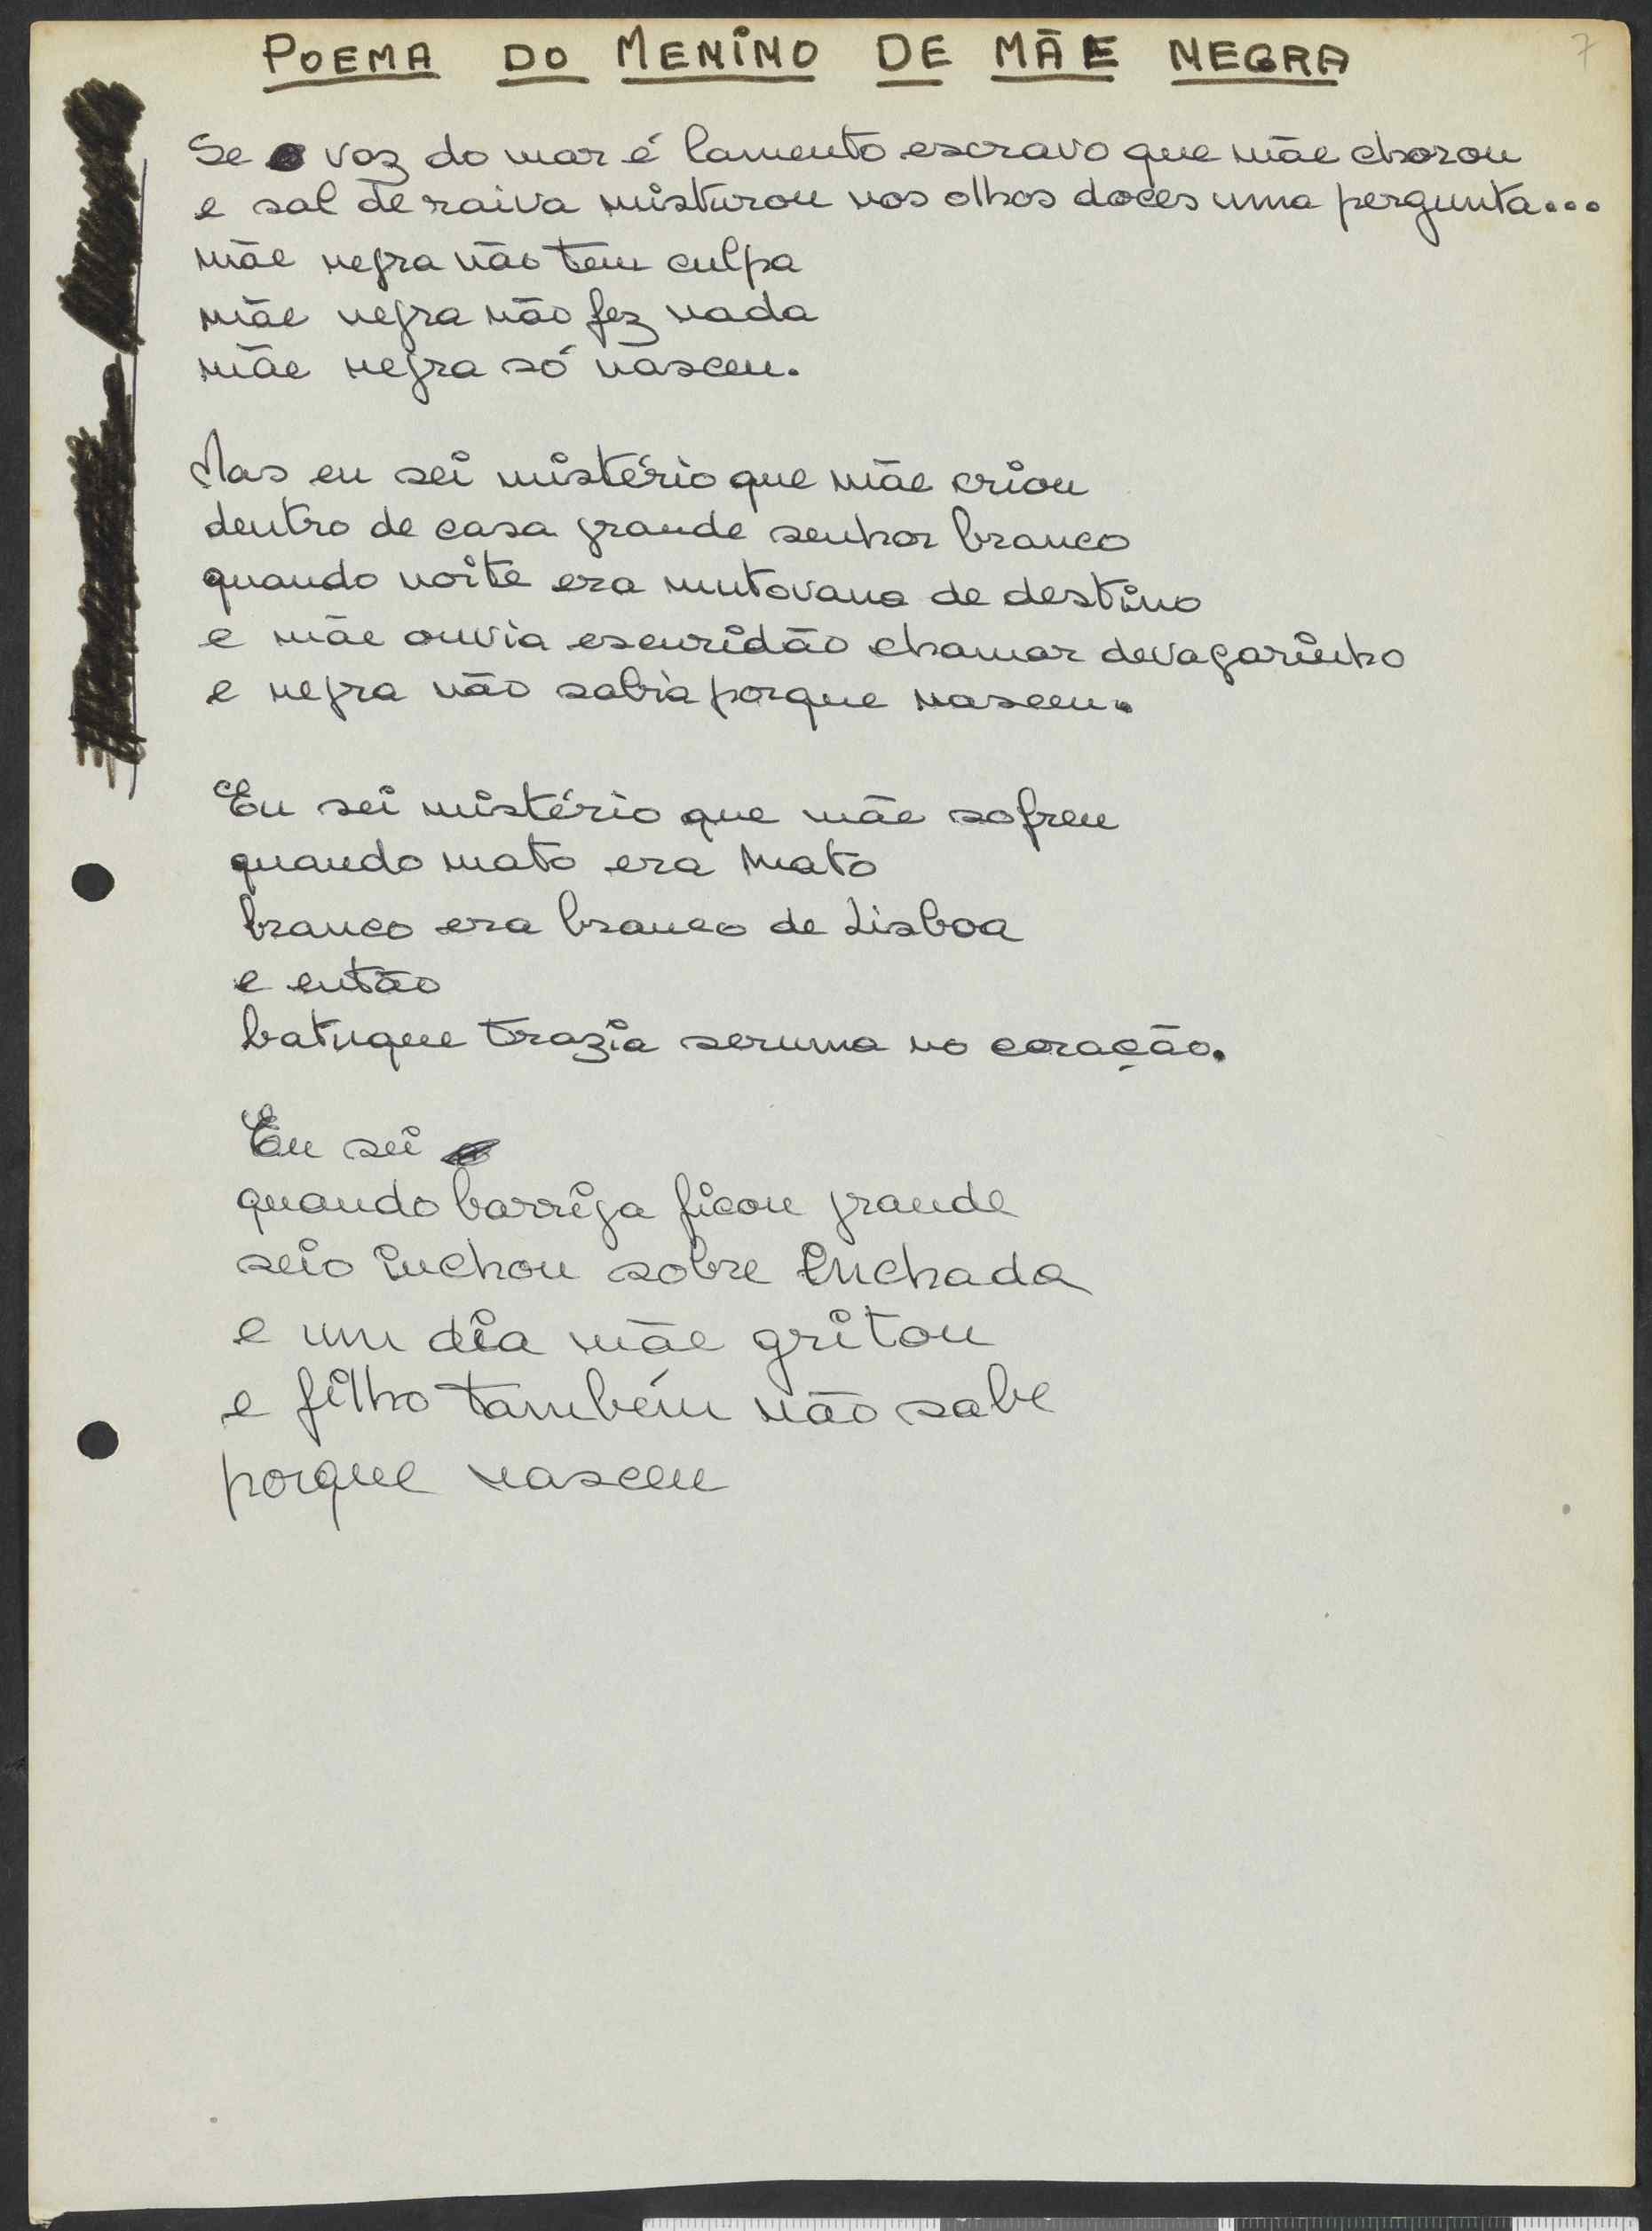 POEMA DO MENINO DE MÃE NEGRA
7
Se voz do mar é lamento escravo que mãe chorou
e sal de raiva misturou nos olhos doces uma pergunta...
mãe negra não tem culpa
mãe negra não fez nada
mãe negra só nasceu.
Mas eu sei mistério que mãe criou
dentro de casa grande senhor branco
quando noite era mutovana de destino
e mãe ouvia escuridão chamar devagarinho
e negra não sabia porque nasceu.
Eu sei mistério que mãe sofreu
quando mato era mato
branco era branco de Lisboa
e então
batuque trazia seruma no coração.
Eu sei
quando barriga ficou grande
seio inchou sobre enchada
e um dia mãe gritou
e filho também não sabe
porque nasceu